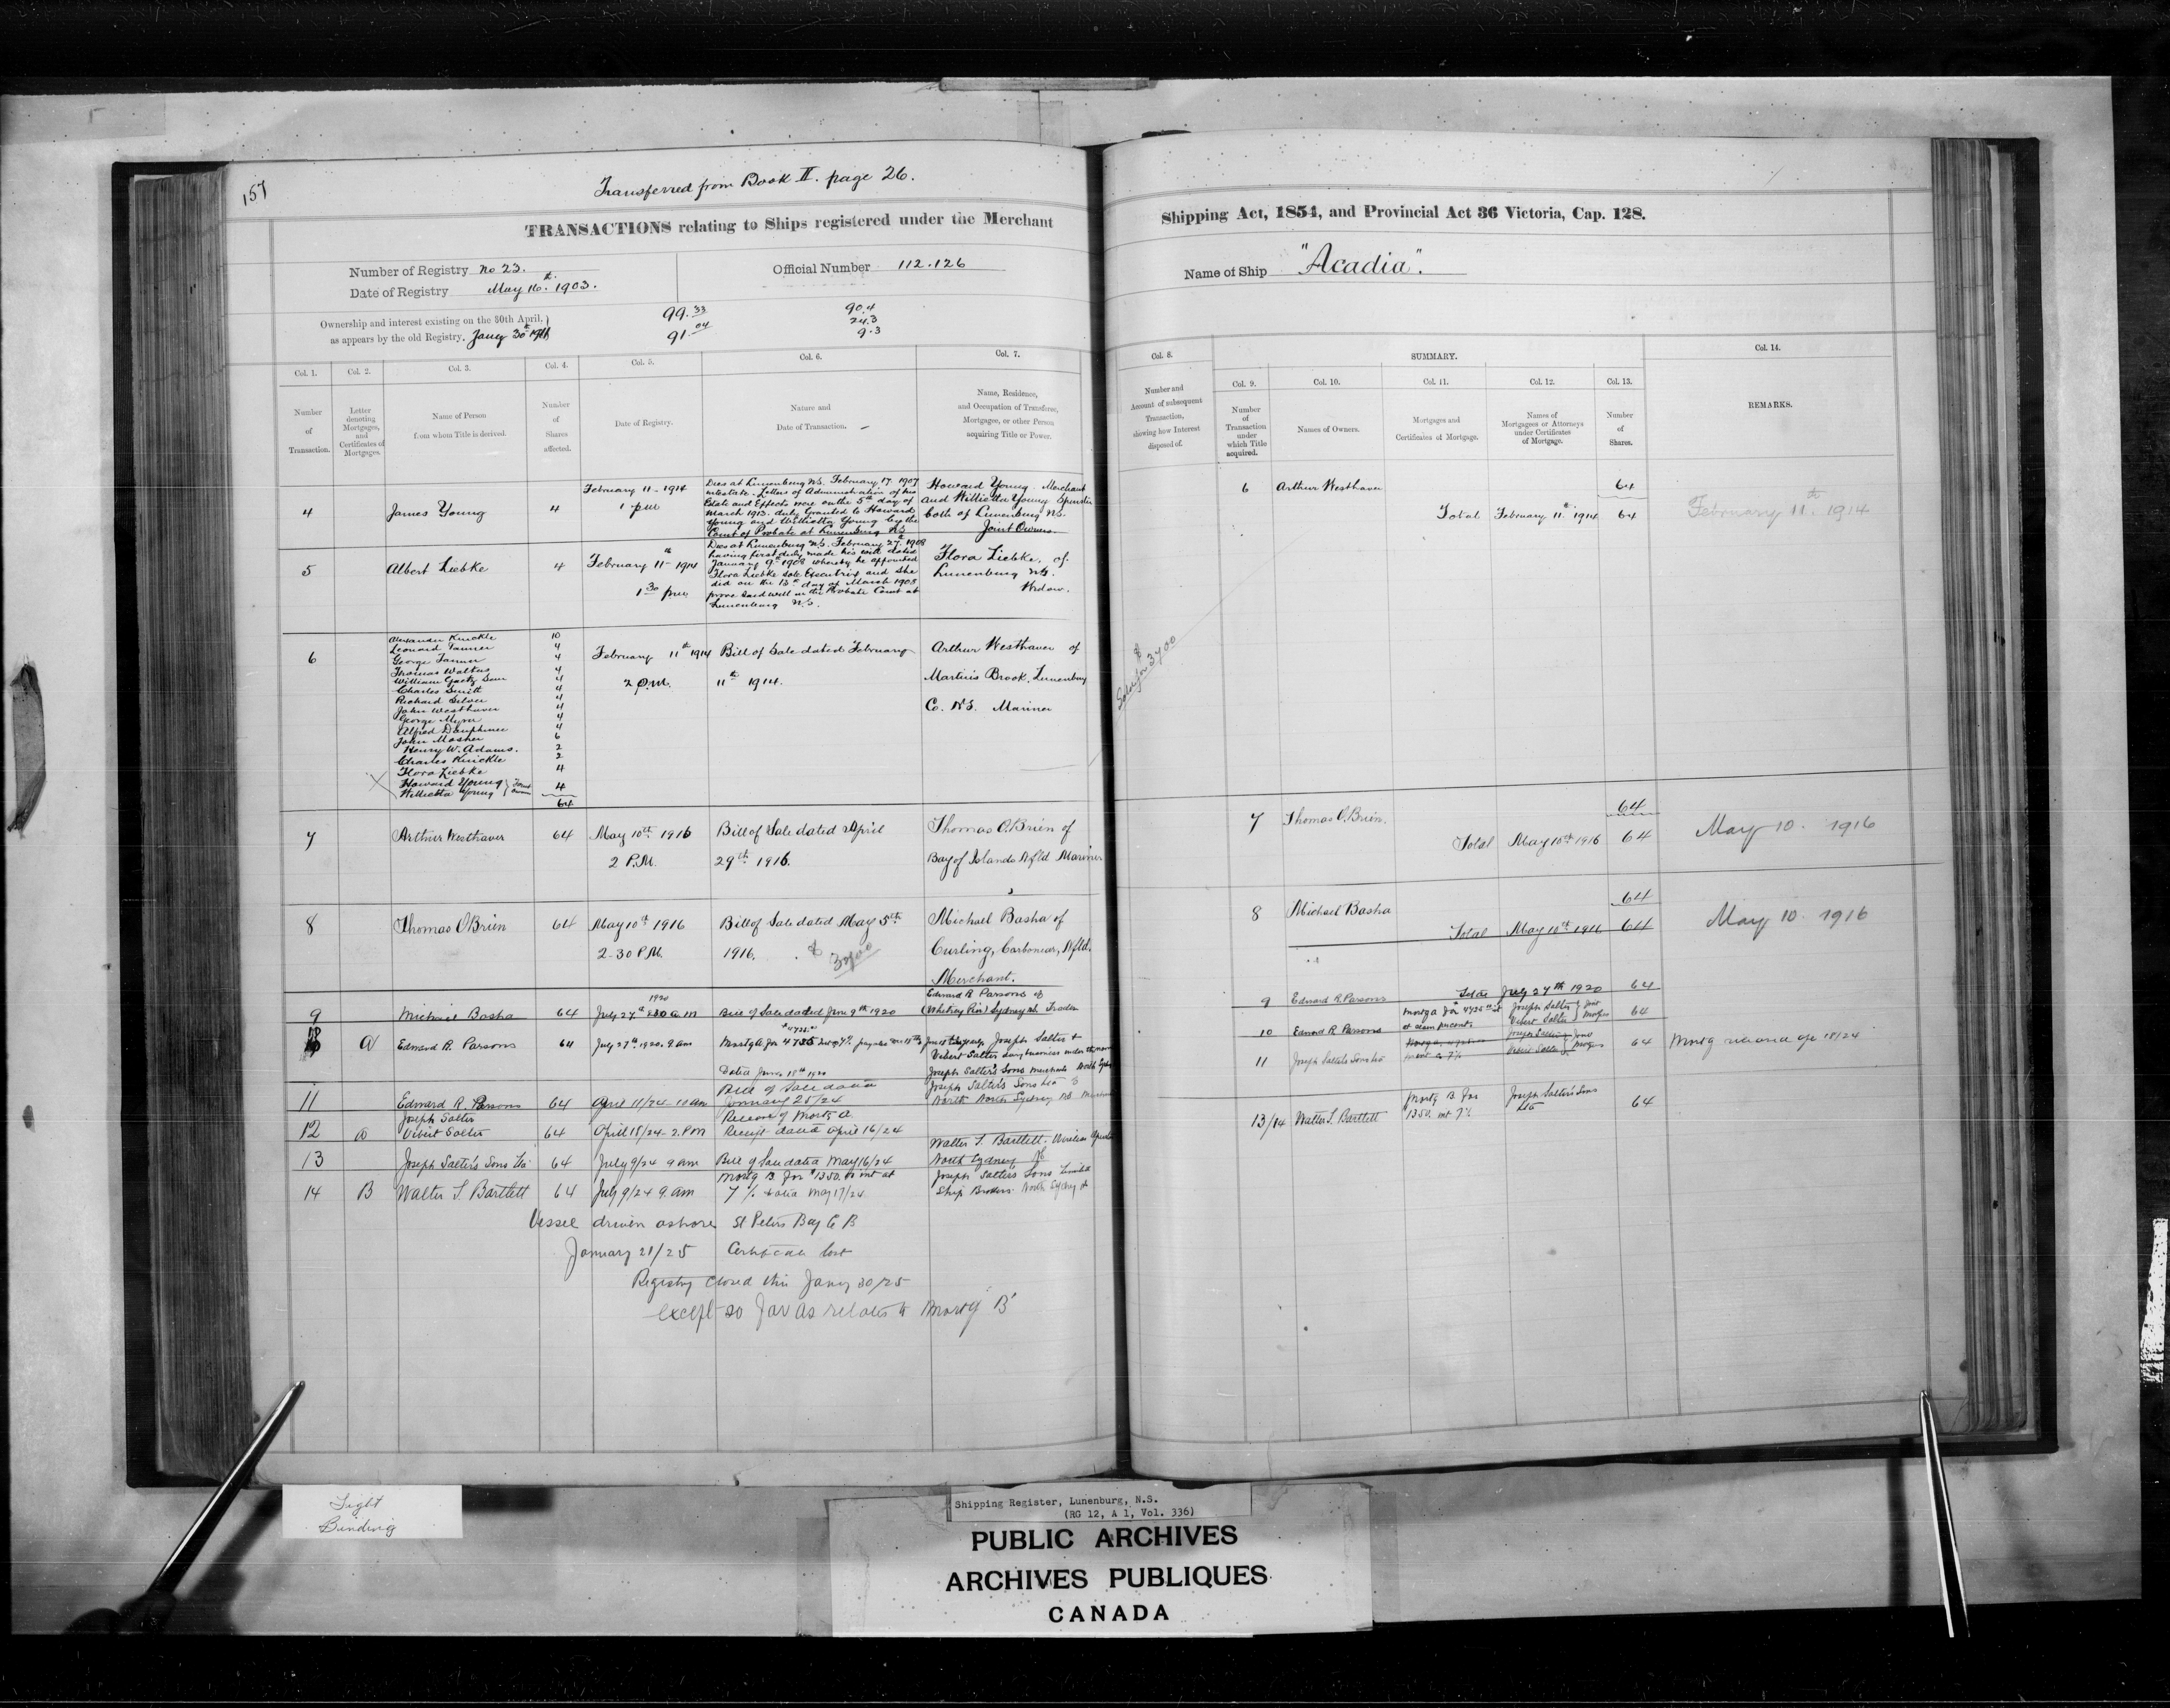 157
Transferred from Book II. page 26.
TRANSACTIONS relating to Ships registered under the Merchant
Shipping Act, 1854, and Provincial Act 36 Victoria, Cap. 128.
Number of Registry no 23.
Official Number 112.126
Name of Ship "Acadia".
Date of Registry May 16th. 1903.
Ownership and interest existing on the 30th April,
as appears by the old Registry,
99.33
91.04
90.4
24.3
9.3
Col. 1.
Number
of
Transaction.
Col. 2.
Letter
denoting
Mortgages,
and
Certificates of
Mortgages.
Col. 3.
Name of Person
from whom Title is derived.
Col. 4.
Number
of
Shares
affected.
Col. 5.
Date of Registry.
Col. 6.
Nature and
Date of Transaction.
Col. 7.
Name, Residence,
and Occupation of Transferee,
Mortgagee, or other Person
acquiring Title or Power.
Col. 8.
Number and
Account of subsequent
Transaction,
showing how Interest
disposed of.
SUMMARY.
Col. 9.
Number
of
Transaction
under
which Title
acquired.
Col. 10.
Names of Owners.
Col. 11.
Mortgages and
Certificates of Mortgage.
Col. 12.
Names of
Mortgagees or Attorneys
under Certificates
of Mortgage.
Col. 13.
Number
of
Shares.
Col. 14.
REMARKS.
4
James Young
4
February 11 - 1914
1 pm
Dies at Lunenburg N.S. February 17 1907
intestate. Letters of Administration of his
Estate and Effects were on the 5th day of
March 1913. duly Granted to Howard
Young and Willietta Young by the
Court of Probate at Lunenburg NS
Howard Young. Merchant
and Willietta Young Spinster
both of Lunenburg NS.
Joint Owners.
5
Albert Liebke
4
February 11th - 1914
1 30 pm
Dies at Lunenburg N.S. February 27th 1908
having first duly made his will dated
January 9th 1908 whereby he appointed
Flora Liebke sole Executrix and she
did on the 13th day of March 1908
prove said will in the Probate Court at
Lunenburg N.S.
Flora Liebke, of
Lunenburg NS.
Widow.
6
Alexander Knickle 10
Leonard Tanner 4
George Tanner 4
Thomas Walters 4
William Gaetz 4
Charles Smith 4
Richard Silver 4
John Westhaver 4
George Myra 4
Alfred Dauphinee 4
John Mosher 6
Henry W. Adams. 2
Charles Knickle 2
Flora Liebke 4
Howard Young
Willietta Young
4
64
February 11th 1914
2 P.M.
Bill of Sale dated February
11th 1914.
Arthur Westhaver of
Martins Brook, Lunenburg
Co. N.S. Mariner
Sold for $ 3700
6 Arthur Westhaver 64
Total February 11th 1914 64
February 11th. 1914
7
Arthur Westhaver
64
May 10th 1916
2 P.M.
Bill of Sale dated April
29th 1916.
Thomas O.Brien of
Bay of Islands Nfld Mariner
7 Thomas O.Brien. 64
Total May 10th 1916 64
May 10. 1916
8
Thomas O Brien
64
May 10th 1916
2-30 P.M.
Bill of Sale dated May 5th
1916. $ 3700
Michael Basha of
Curling, Carbonear, Nfld.
Merchant.
8 Michael Basha 64
Total May 10th 1916 64
May 10. 1916
9 Michael Basha 64
July 27th 1920
Bill of Sale dated June 9th 1920
Edward R Parsons of
(Whitney Pier) Sydney NS. Trader
9 Edward R. Parsons
Total July 27th 1920 64
A Edward R. Parsons 64 July 27th. 1920. 9 am
Dated June 18th 1920
Joseph Salter &
Joseph Salter's Sons Merchants North Sydney
10 Edward R Parsons
Mortg A for 4735
Joseph Salter
Vibert Salter
64
11 Joseph Salter's Sons Ltd 64
Mortg released Apr 18/24
11 Edward R. Parsons 64 April 11/24 10 am
Bill of Sale dated
January 25/24
Joseph Salter's Sons Ltd
North Sydney NS
12 A
Joseph Salter
Vibert Salter
64 April 18/24 - 2. PM
Release of Mortg A
Receipt dated April 16/24
13 Joseph Salter's Sons Ltd 64 July 9/24 9 am
Bill of Sale dated May 16/24
Walter S. Bartlett.
North Sydney NS
14 B Walter S. Bartlett 64 July 9/24 9. am
Mortg B for $1350. & int at
7 % dated May 17/24.
Joseph Salter's Sons Limited
Ship Brokers. North Sydney
13/14 Walter S. Bartlett
Mortg B for
1350. int 7%
Joseph Salter's Sons
Ltd
64
Vessel driven ashore St Peters Bay C B
January 21/25 Certificate lost
Registry closed this Jany 30/25
except so far as relates to Mortg 'B'
Tight
Binding
Shipping Register, Lunenburg, N.S.
(RG 12, A 1, Vol. 336)
PUBLIC ARCHIVES
ARCHIVES PUBLIQUES
CANADA